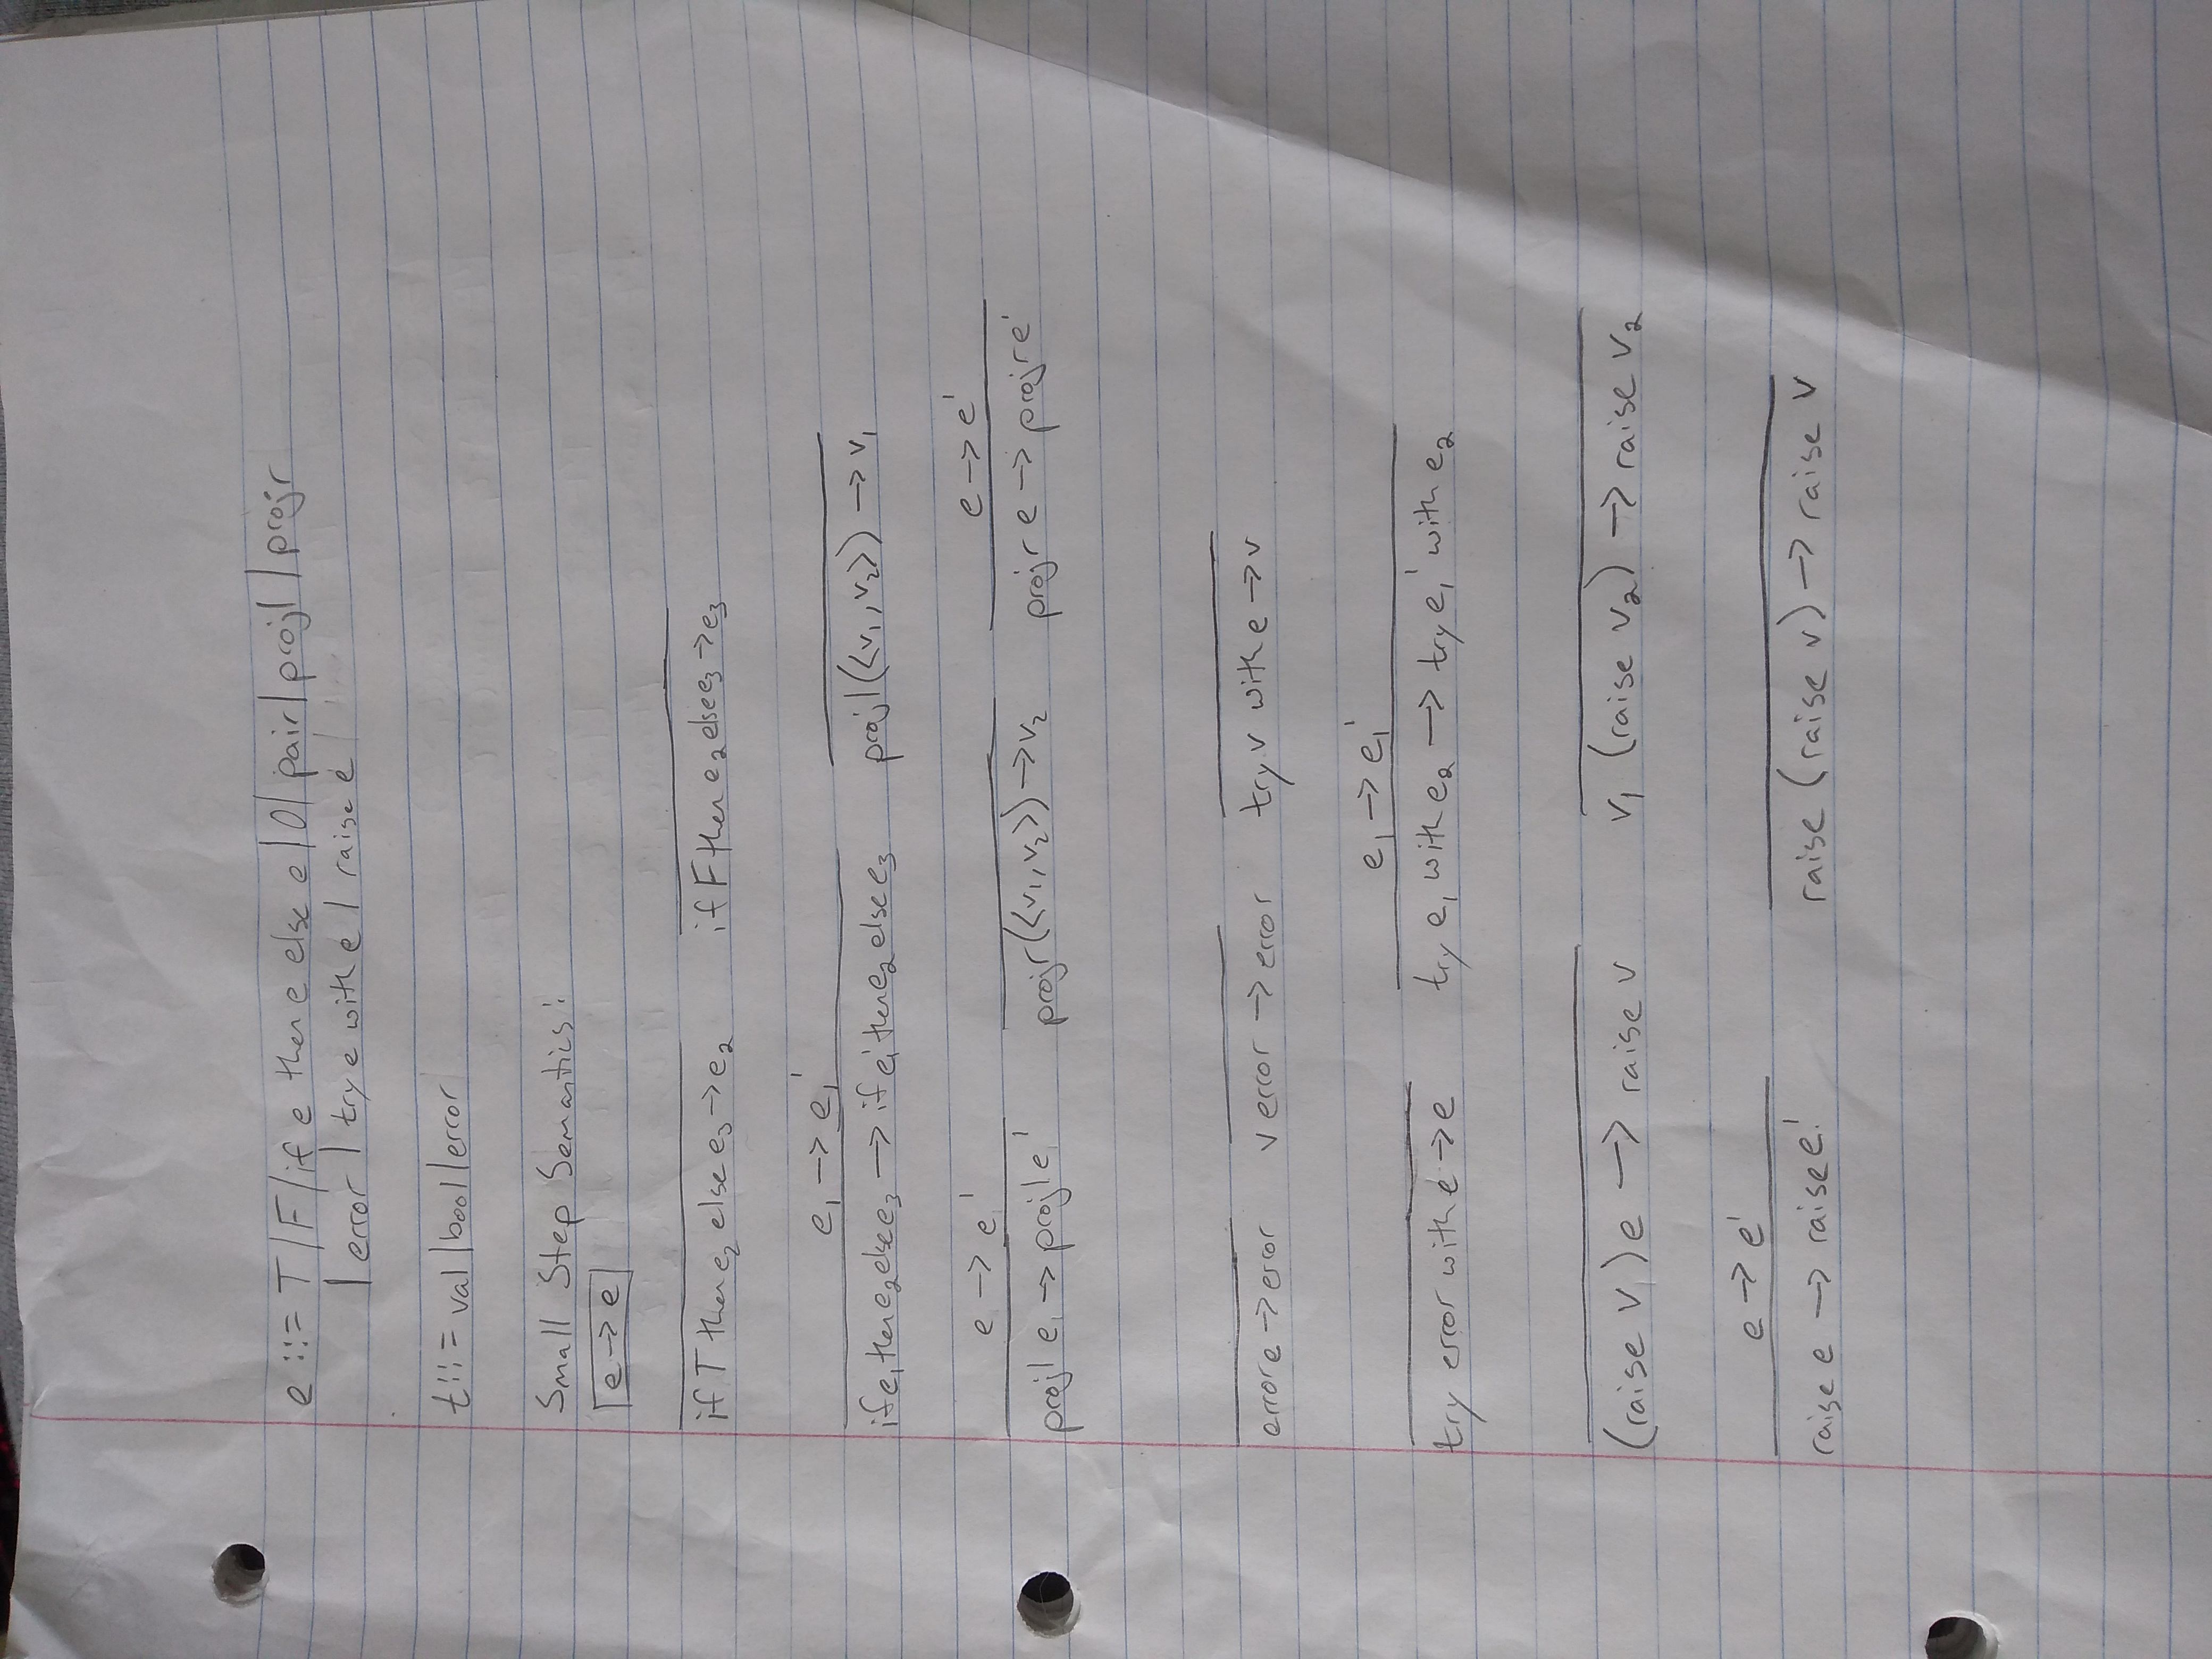 e ::= T | F | if e then e else e | 0 | pair | projl | projr
| error | try e with e | raise e
t ::= val | bool | error
Small Step Semantics:
e → e
if T then e₂ else e₃ → e₂ if F then e₂ else e₃ → e₃
e₁ → e₁'
if e₁ then e₂ else e₃ → if e₁' then e₂ else e₃ projl(<v₁, v₂>) → v₁
e → e' e → e'
projl e → projl e' projr(<v₁, v₂>) → v₂ projr e → projr e'
error e → error v error → error try v with e → v
e₁ → e₁'
try error with e → e try e₁ with e₂ → try e₁' with e₂
(raise v) e → raise v v₁ (raise v₂) → raise v₂
e → e'
raise e → raise e' raise (raise v) → raise v